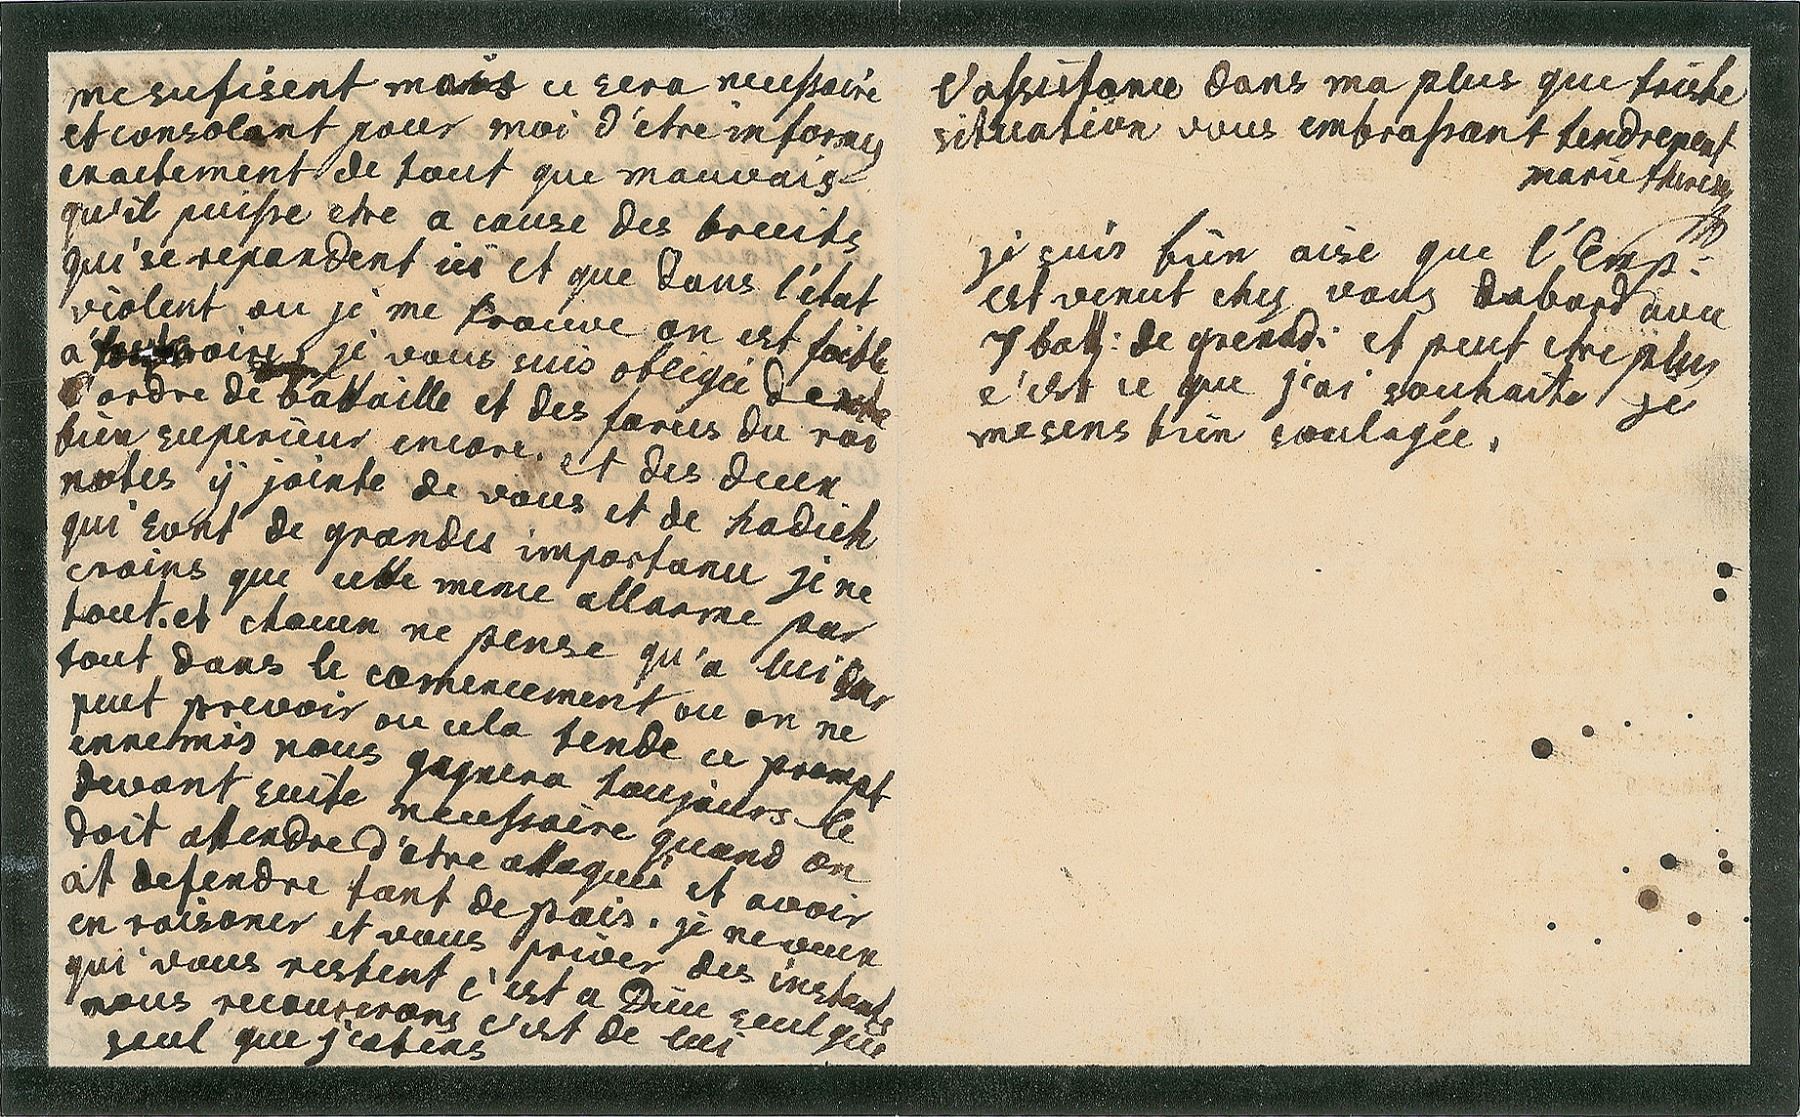 me sufisent mais ce sera necessaire
et consolant pour moi d'etre informey
exactement de tout que mauvais
qu'il puisse etre a cause des breuits
qui se repandent ici et que dans l'état
violent ou je me trouve on est foible
a je vous suis obligée de
l'ordre de bataille et des forces du roi
bien superieur encore. et des deux
notes ÿ jointe de vous et de hadich
qui sont de grandes importance je ne
crains que cette meme allarme par
tout. et chacun ne pense qu'a lui sur
tout dans le comencement ou on ne
peut prevoir ou cela tende ce prompt
ennemis nous gagnera toujours le
devant suite necessaire quand on
doit attendre d'etre attaquée et avoir
at defendre tant de païs. je ne veux
en raisoner et vous priver des instants
qui vous restent c'est a Dieu seul que
nous recourerons c'est de lui
seul que j'atens
l'assistance dans ma plus que triste
situation vous embrassant tendrement
marie therese
je suis bien aise que l'Emp:
est venut chez vous dabord avec
7 batt: de grenad: et peut etre plus
c'est ce que j'ai souhaite je
me sens bien soulagée.